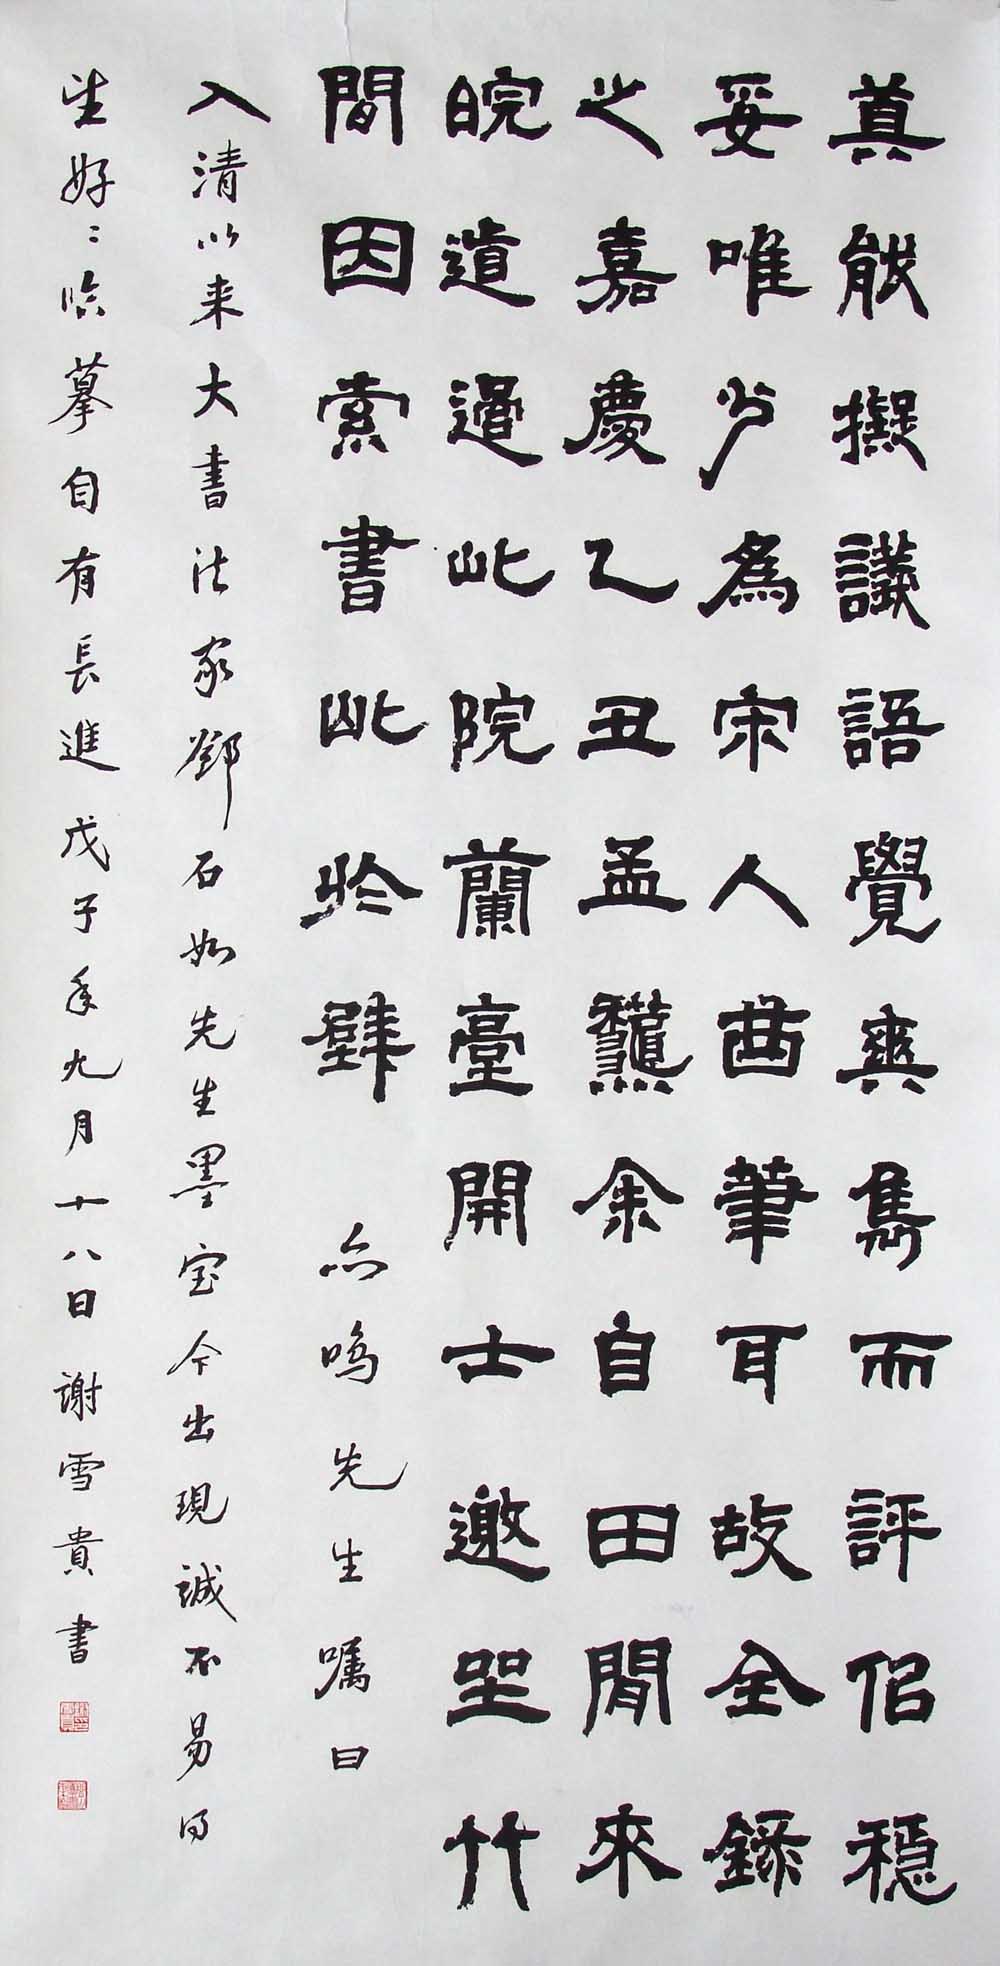 真能擬議語覺爽雋而評侶穩
妥唯少為宋人酋筆耳故全錄
之嘉慶乙丑孟龝余自田閒來
皖道過此院蘭臺開士邀坐竹
間因索書此於壁 亦鳴先生嘱曰
入清以来大書法家鄧石如先生墨宝今出現誠不易得
望好〻临摹自有長進戊子年九月十八日 謝雪貴書